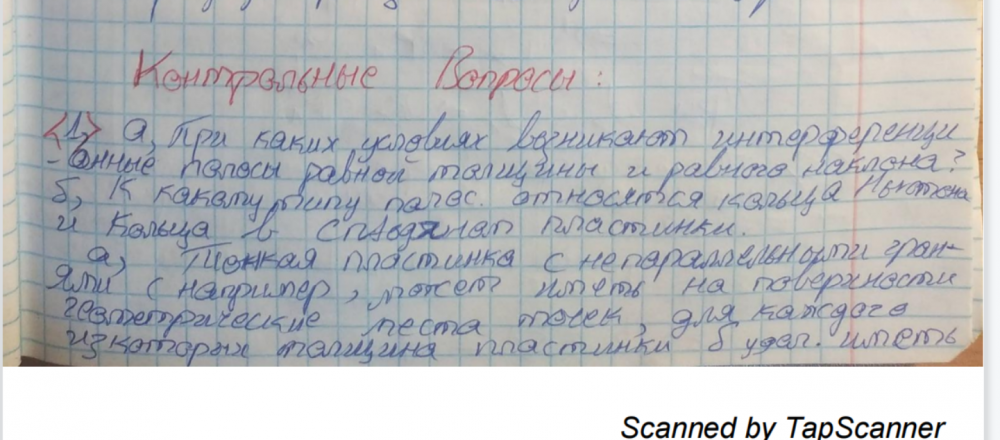 Контрольные Вопросы:
<1> а, При каких условиях возникают интерференци
-онные полосы равной толщины и равного наклона?
б, К какому типу полос. относятся кольца Ньютона
и Кольца в слюдяной пластинки.
а) Тонкая пластинка с непараллельными гран-
ями с например, может иметь на поверхности
геометрические места точек, для каждого
из которых толщина пластинки будет. иметь
Scanned by TapScanner